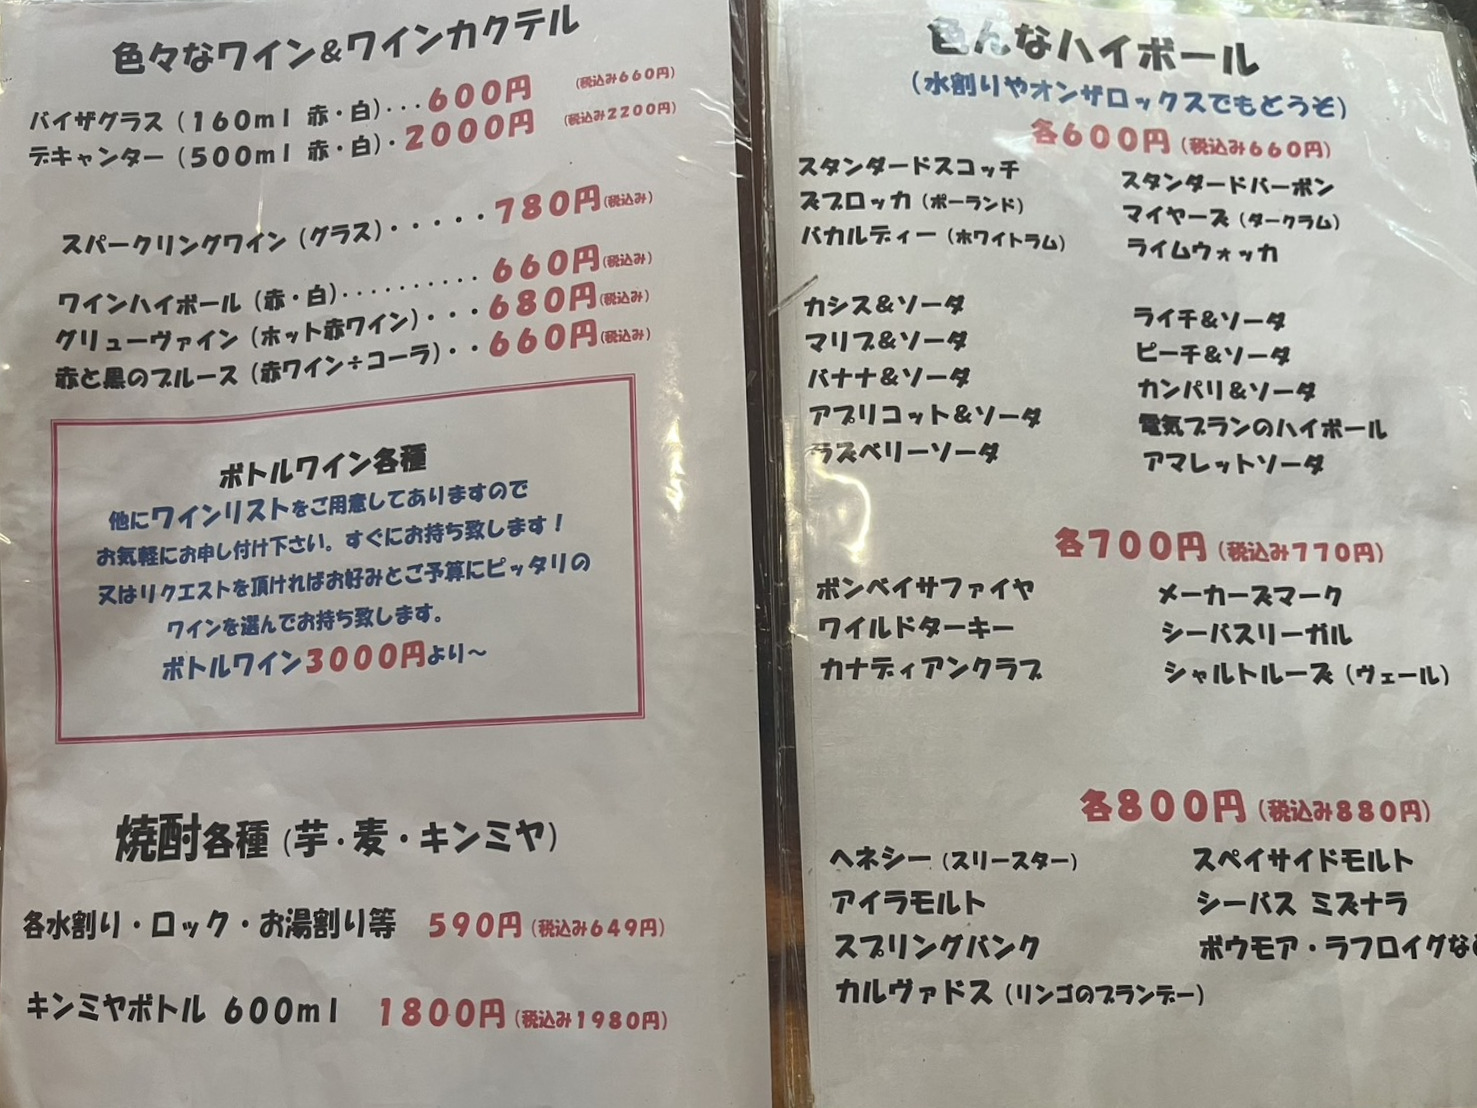 色々なワイン&ワインカクテル
バイザグラス(160ml 赤・白)・・・600円 (税込み660円)
デキャンター(500ml 赤・白)・2000円 (税込み2200円)
スパークリングワイン(グラス)・・・・・780円(税込み)
ワインハイボール(赤・白)・・・・・・・・・・660円(税込み)
グリューヴァイン(ホット赤ワイン)・・・680円(税込み)
赤と黒のブルース(赤ワイン÷コーラ)・・660円(税込み)
ボトルワイン各種
他にワインリストをご用意してありますので
お気軽にお申し付け下さい。すぐにお持ち致します!
又はリクエストを頂ければお好みとご予算にピッタリの
ワインを選んでお持ち致します。
ボトルワイン3000円より〜
焼酎各種(芋・麦・キンミヤ)
各水割り・ロック・お湯割り等 590円(税込み649円)
キンミヤボトル 600ml 1800円(税込み1980円)
色んなハイボール
(水割りやオンザロックスでもどうぞ)
各600円(税込み660円)
スタンダードスコッチ スタンダードバーボン
ズブロッカ(ポーランド) マイヤーズ(ダークラム)
バカルディー(ホワイトラム) ライムウォッカ
カシス&ソーダ ライチ&ソーダ
マリブ&ソーダ ピーチ&ソーダ
バナナ&ソーダ カンパリ&ソーダ
アプリコット&ソーダ 電気ブランのハイボール
ラズベリーソーダ アマレットソーダ
各700円(税込み770円)
ボンベイサファイヤ メーカーズマーク
ワイルドターキー シーバスリーガル
カナディアンクラブ シャルトルーズ(ヴェール)
各800円(税込み880円)
ヘネシー(スリースター) スペイサイドモルト
アイラモルト シーバス ミズナラ
スプリングバンク ボウモア・ラフロイグなど
カルヴァドス(リンゴのブランデー)